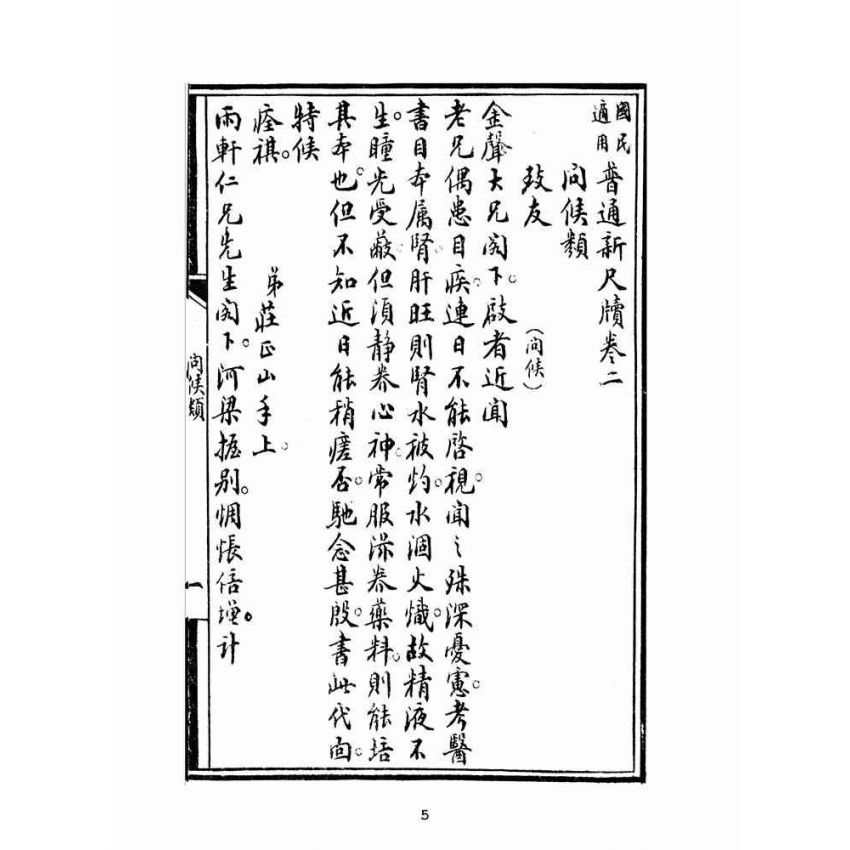 國民適用 普通新尺牘卷二
問候類
致友 (問候)
金聲大兄閣下。啟者近聞
老兄偶患目疾。連日不能啓視。聞之殊深憂慮。考醫
書目本属腎。肝旺則腎水被灼。水涸火熾。故精液不
生。瞳光受蔽。但須静養心神。常服滋養藥料。則能培
其本也。但不知近日能稍瘥否。馳念甚殷。書此代面。
特候
痊祺。
弟莊正山手上。
雨軒仁兄先生閣下。河梁握别。惆悵倍增。计
問候類
一
5